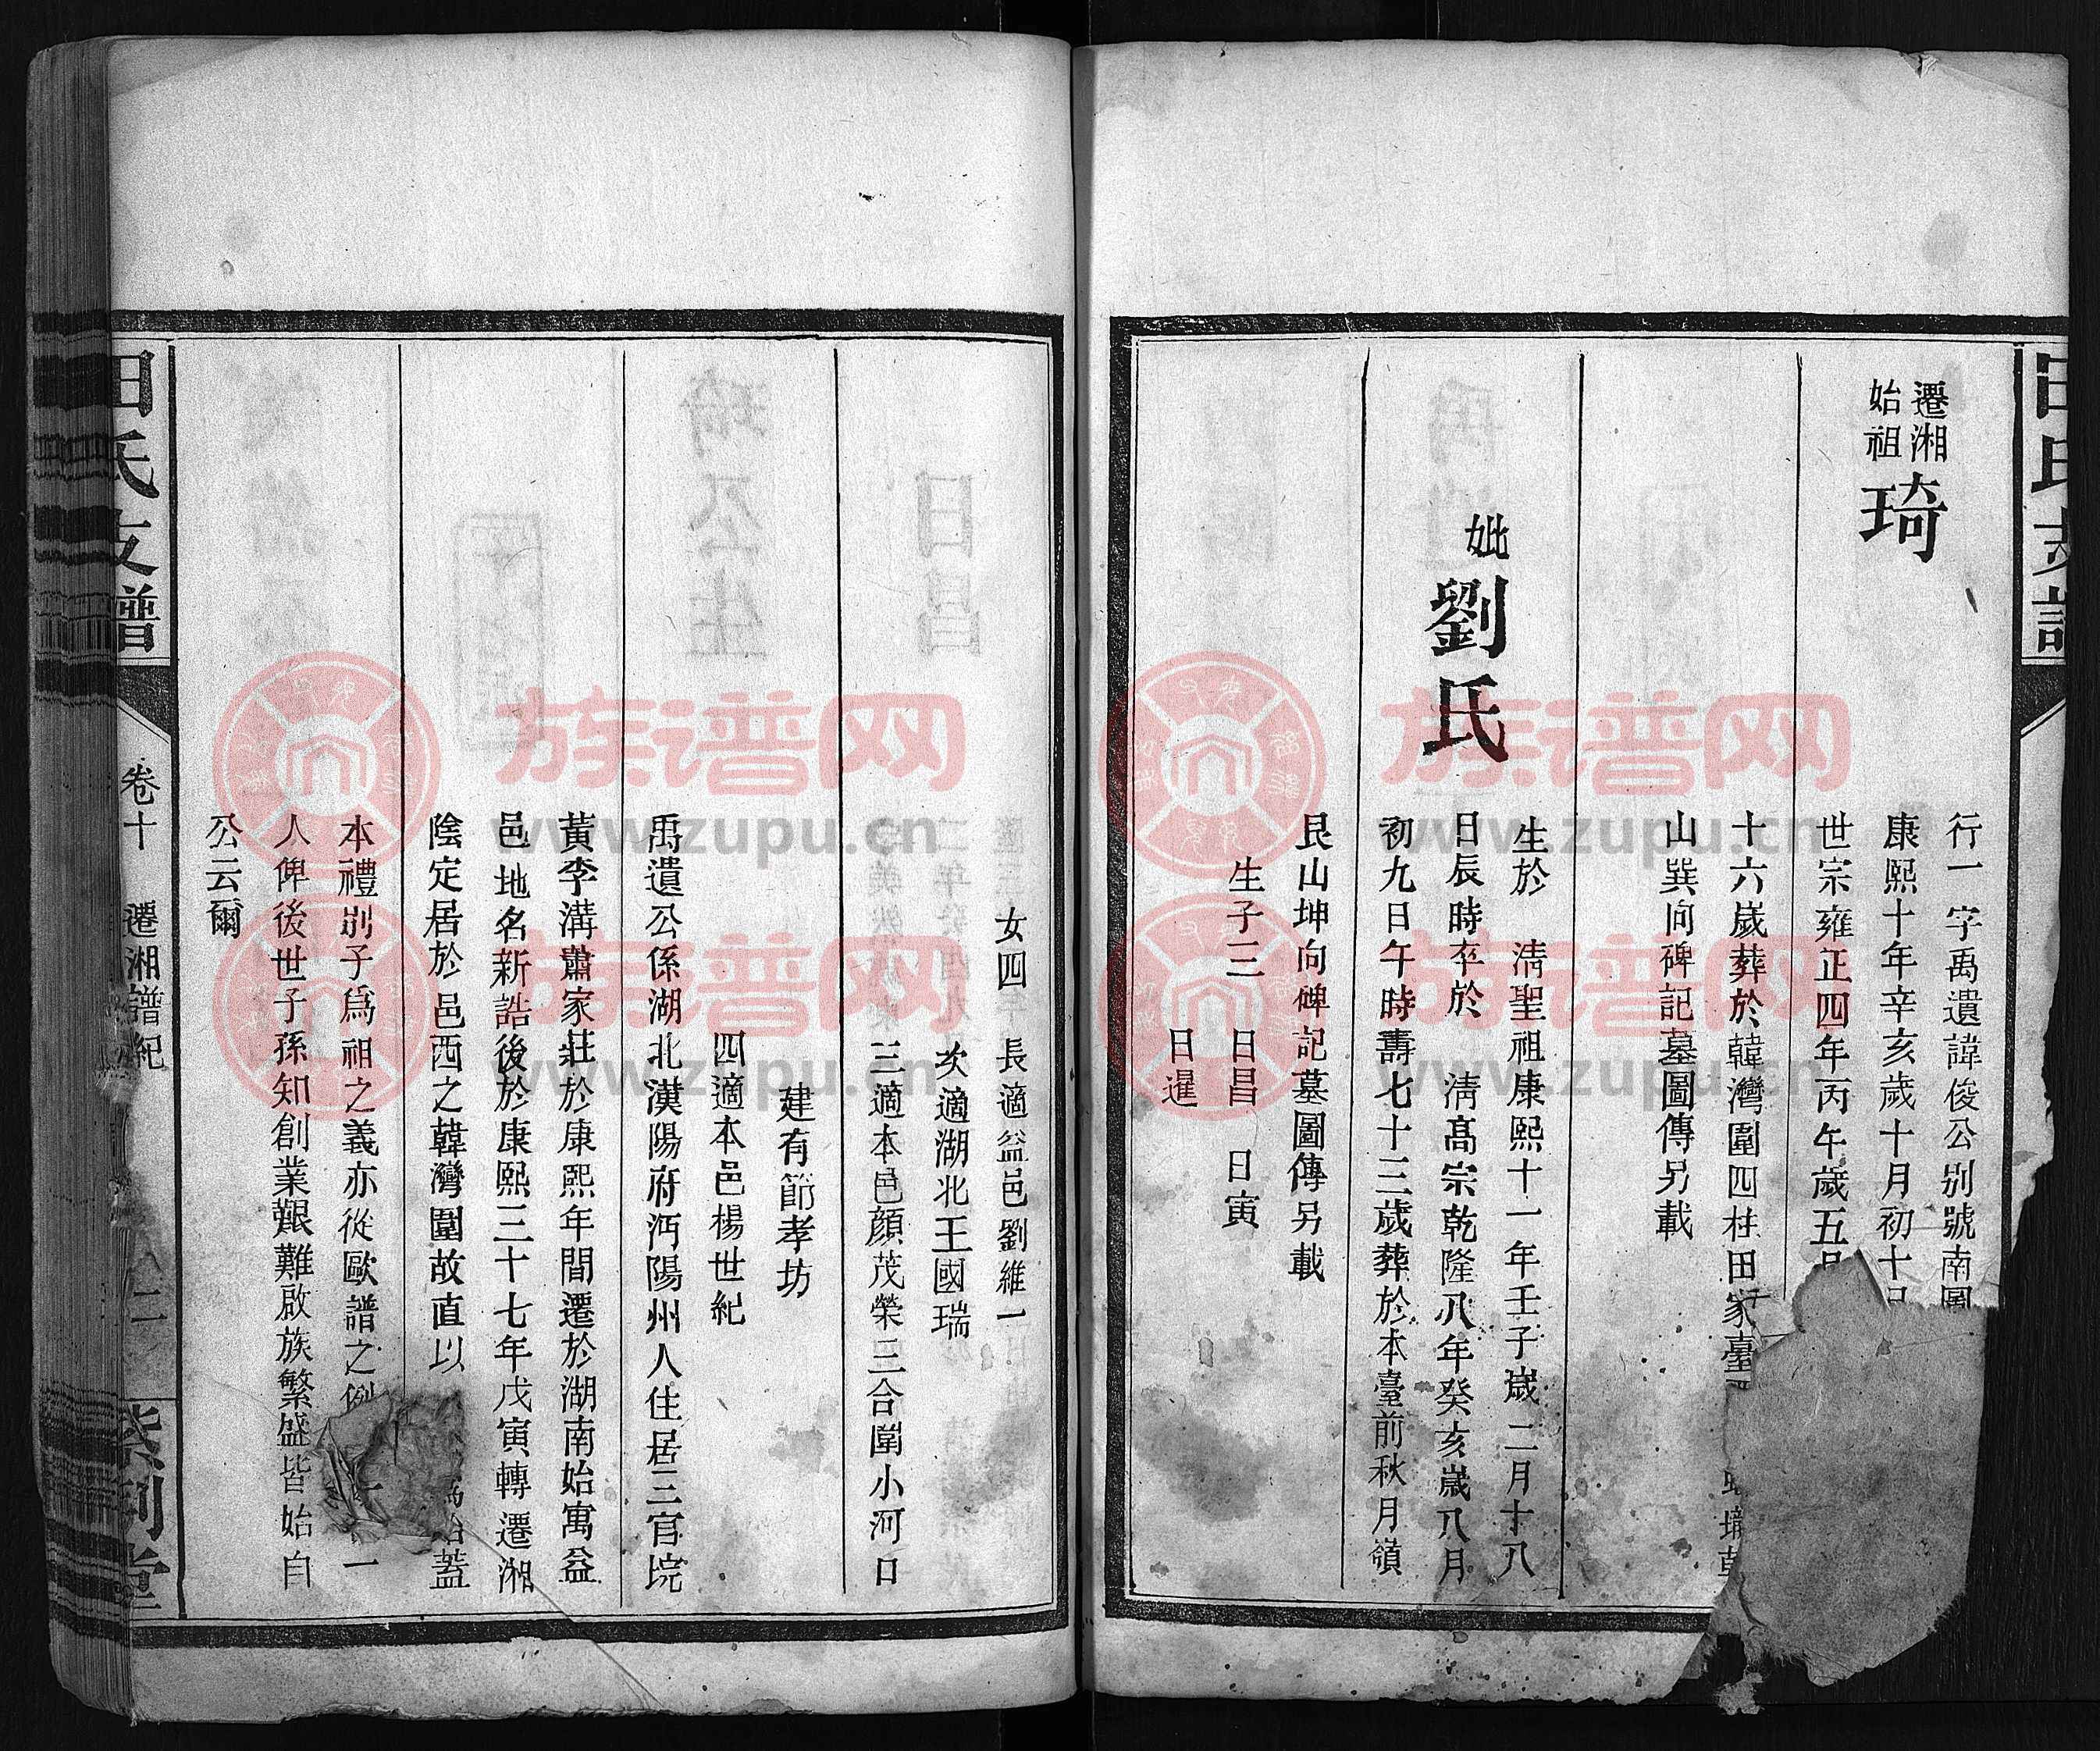 田氏支譜
遷湘
始祖
琦
行一字禹遺諱俊公别號南圃
康熙十年辛亥歲十月初十
世宗雍正四年丙午歲五月
十六歲葬於韓灣圍四柱田家臺
山巽向碑記墓圖傳另載
妣劉氏
生於 清聖祖康熙十一年壬子歲二月十八
日辰時卒於 清高宗乾隆八年癸亥歲八月
初九日午時壽七十三歲葬於本臺前秋月嶺
艮山坤向碑記墓圖傳另載
生子三 日昌 日寅
日暹
女四 長適益邑劉維一
次適湖北王國瑞
三適本邑顔茂榮三合圍小河口
建有節孝坊
四適本邑楊世紀
禹遺公係湖北漢陽府沔陽州人住居三官垸
黃李溝蕭家莊於康熙年間遷於湖南始寓益
邑地名新誥後於康熙三十七年戊寅轉遷湘
陰定居於邑西之韓灣圍故直以 蓋
本禮别子爲祖之義亦從歐譜之例 一
人俾後世子孫知創業艱難啟族繁盛皆始自
公云爾
田氏支譜
卷十 遷湘譜紀
二
紫荆堂
族谱网
www.zupu.cn
www.zupu.cn
族谱网
www.zupu.cn
www.zupu.cn